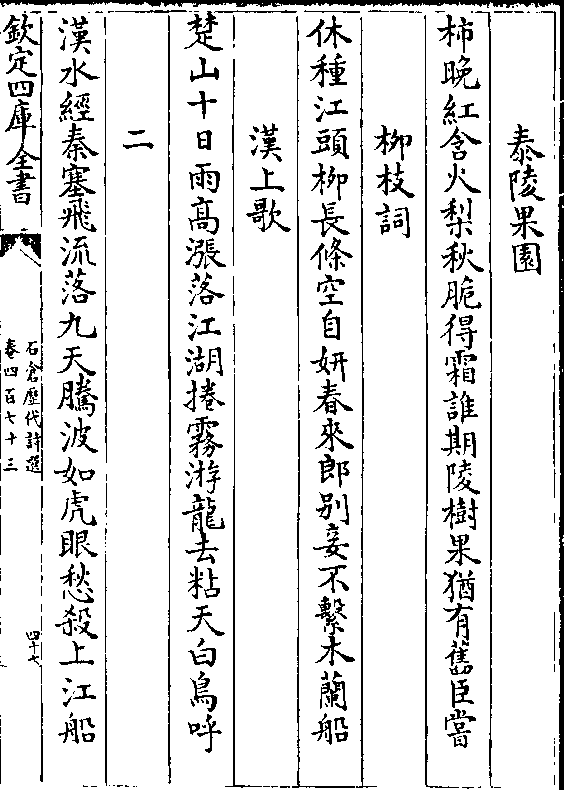 泰陵果園
柿晚紅含火梨秋脆得霜誰期陵樹果猶有舊臣嘗
柳枝詞
休種江頭柳長條空自妍春來郎别妾不繫木蘭船
漢上歌
楚山十日雨高漲落江湖捲霧游龍去粘天白鳥呼
二
漢水經秦塞飛流落九天騰波如虎眼愁殺上江船
欽定四庫全書
石倉歷代詩選
卷四百七十三
四十七